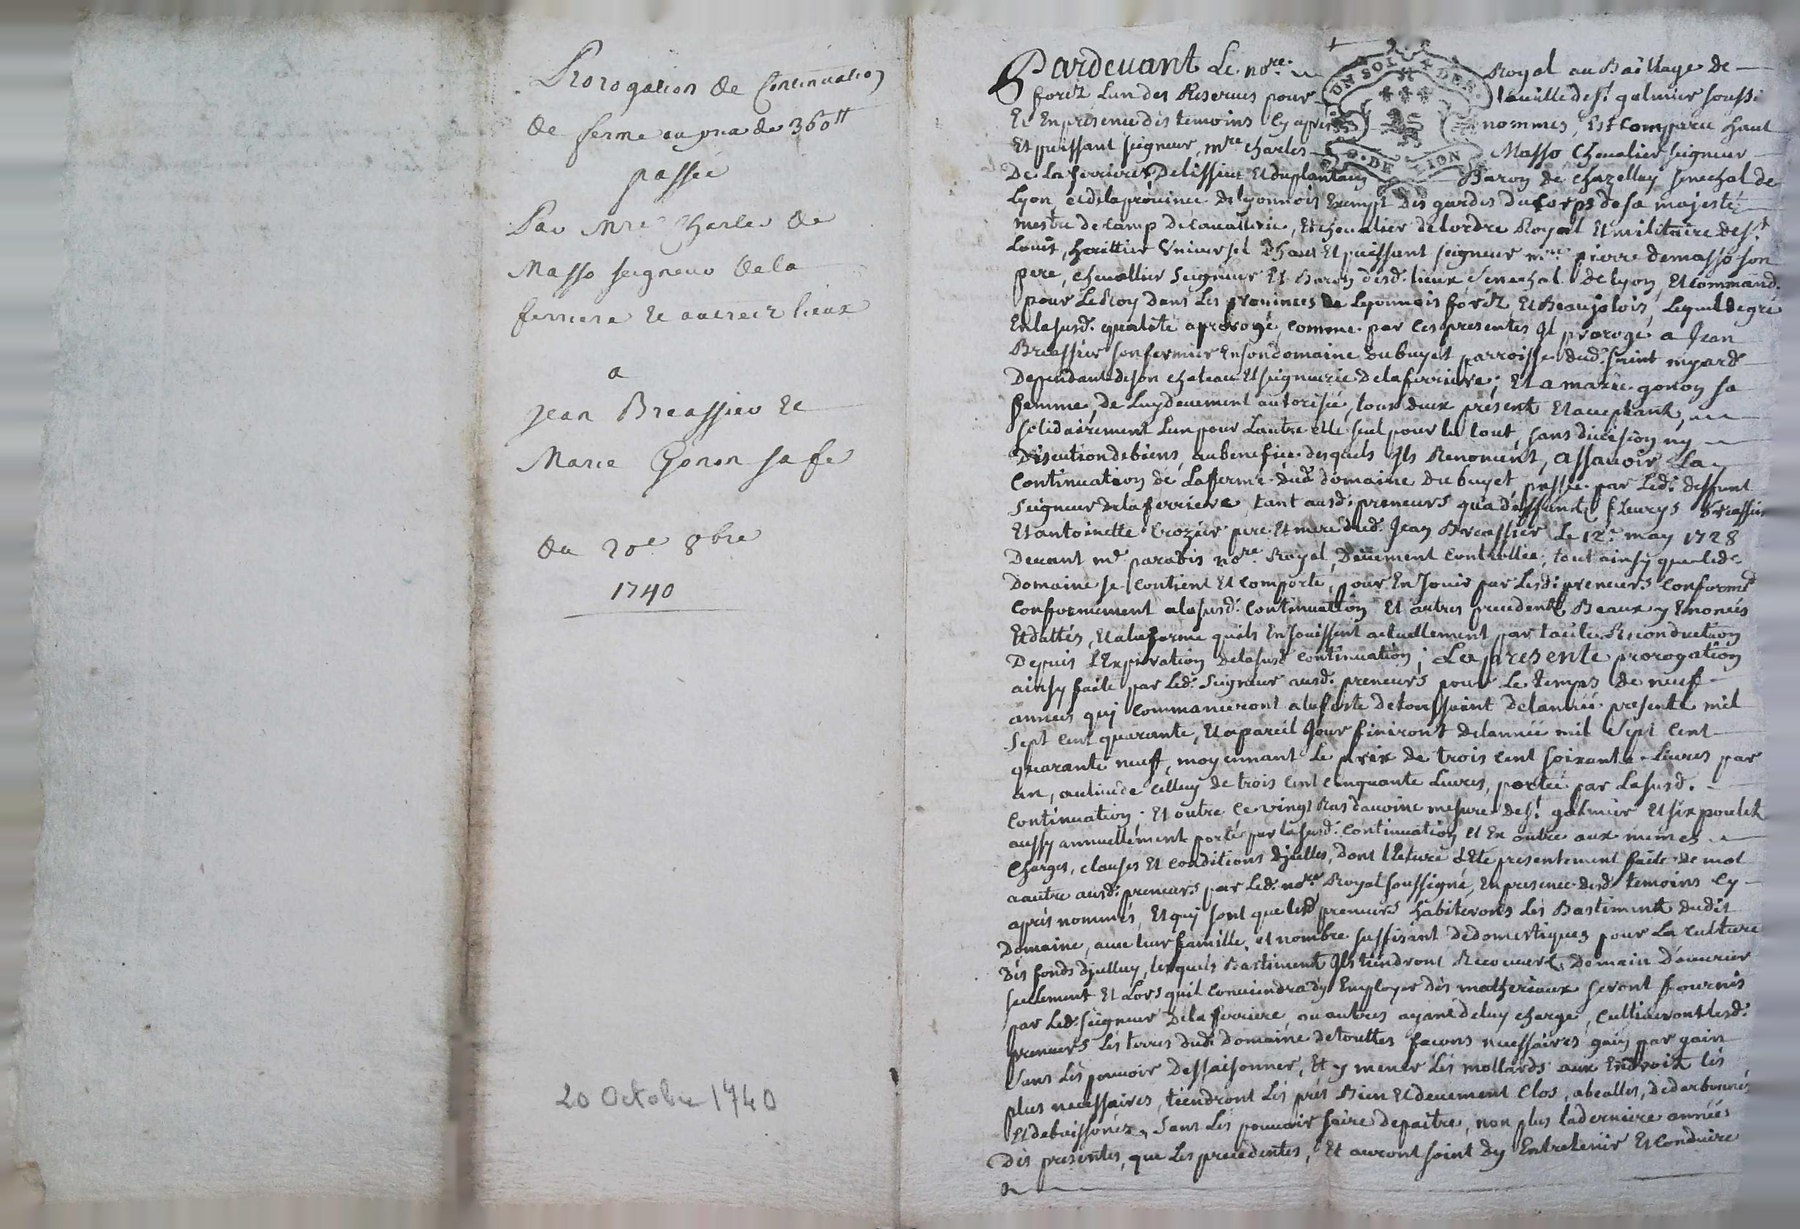 Prorogation de Continuation
de ferme au prix de 360tt
passée
Par Mre Charles de
Masso seigneur dela
ferriere et autres lieux
a
Jean Breassieu et
Marie Gonon sa fe
du 20e 8bre
1740
20 Octobre 1740
UN SOL DES
G. DE LION
Pardevant Le nore. Royal au Bailliage de
forêz Lun des Reservés pour la ville de st galmier soussi
Et En presence des temoins Cy apres nommes, Est Comparu haut
Et puissant seigneur, mre charles Masso Chevalier seigneur
De La ferriere, De lissieu Et du plantain Baron de Chazelley senechal de
Lyon, et de la province de lyonnois Exempt des gardes du Corps de sa majesté
mestre de Camp de Cavallerie, Et Chevalier de lordre Royal Et militaire de st
Louis, heritier Universel d'haut Et puissant seigneur mre pierre de masso son
pere, Chevallier Seigneur Et Baron desd. lieux Senechal de Lyon, Et Command.
pour Le Roy Dans Les provinces de Lyonnois foréz Et Beaujolois, Lequel de gré
En la susd. qualité a prorogé, comme par Ces presentes Il proroge a Jean
Breassier son fermier En son domaine du buyet parroisse dud. saint meyard
Dependant de son chateau Et seigneurie de la ferriere; Et a marie gonon sa
femme, de Luy deuement autorisée, tous deux présent Et acceptant,
solidairement Lun pour Lautre Et le seul pour le tout, sans division ny
Discution de biens, au benefice desquels Ils Renoncent, assavoir La
Continuation de Lafferme dud. domaine du buyet passée par Led. deffunt
seigneur de la ferriere tant ausd. preneurs qua deffunt fleurys Breassier
Et antoinette Crozier pere Et mere dud. Jean Breassier Le 12e may 1728
Devant me parabis nore. Royal, Deuement Controllée; tout ainsy que led.
Domaine se Contient Et Comporte, pour En Jouir par Lesd. preneurs Conforme
Conformement a la susd. Continuation Et autres precedents Beaux y Enoncés
Et dattés, Et a la forme quils En Jouissent actuellement par tacite Reconduction
Depuis l'Expiration de la susd. Continuation; La presente prorogation
ainsy faite par Led. Seigneur ausd. preneurs pour Le temps de neuf
années quy Commanceront a la feste de toussaint de lannée presente mil
sept Cent quarante, Et a pareil Jour finiront de lannée mil sept Cent
quarante neuf, moyennant Le prix de trois Cent soixante Livres par
an, au lieu de Celluy de trois Cent Cinquante Livres, porté par La susd.
Continuation. Et outre Ce vingt Ras d'avoine mesure de st. galmier Et six poulets
aussy annuellement portés par la susd. Continuation Et En outre aux memes
Charges, clauses Et Conditions d'jcelles, dont lecture a Eté presentement faite de mot
a autre ausd. preneurs par Led. nore Royal soussigné, En presence desd. temoins Cy
après nommés, Et quy sont que lesd. preneurs habiterons Les Bastiments dudit
Domaine, avec leur famille, et nombre suffisant de domestiques pour La Culture
Des fonds d'jcelluy, lesquels Bastiments Ils tiendront Recouverts, Demain D'ouvrier
seulement Et Lors quil Conviendra dy Employer des matheriaux seront fournis
par Led. seigneur de la ferriere ou autres ayant de luy charge, Cultiveront lesd.
preneurs Les terres dud. Domaine de touttes façons necessaires gain par gain
sans Les pouvoir Dessaisonner, Et y mener Les mollards aux Endroits les
plus necessaires, tiendront Les prés Bien Et deuement Clos, abeallés, dedarbonnés
Et debuissonez, Sans Les pouvoir faire depaitre, non plus la derniere année
Des presentes, que Les precedentes, Et auront soint dy Entretenir Et Conduire